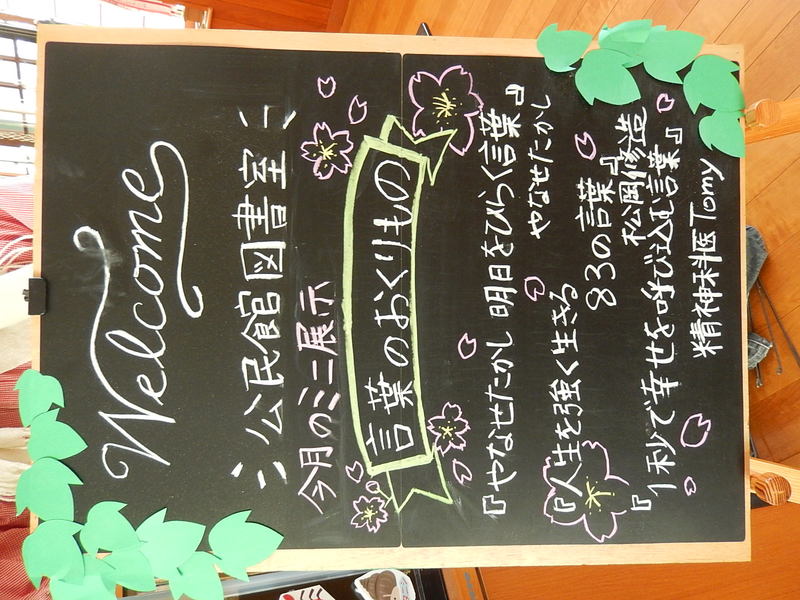 Welcome
公民館図書室
今月のミニ展示
言葉のおくりもの
『やなせたかし 明日をひらく言葉』
やなせたかし
『人生を強く生きる
83の言葉』
松岡修造
『1秒で幸せを呼び込む言葉』
精神科医Tomy